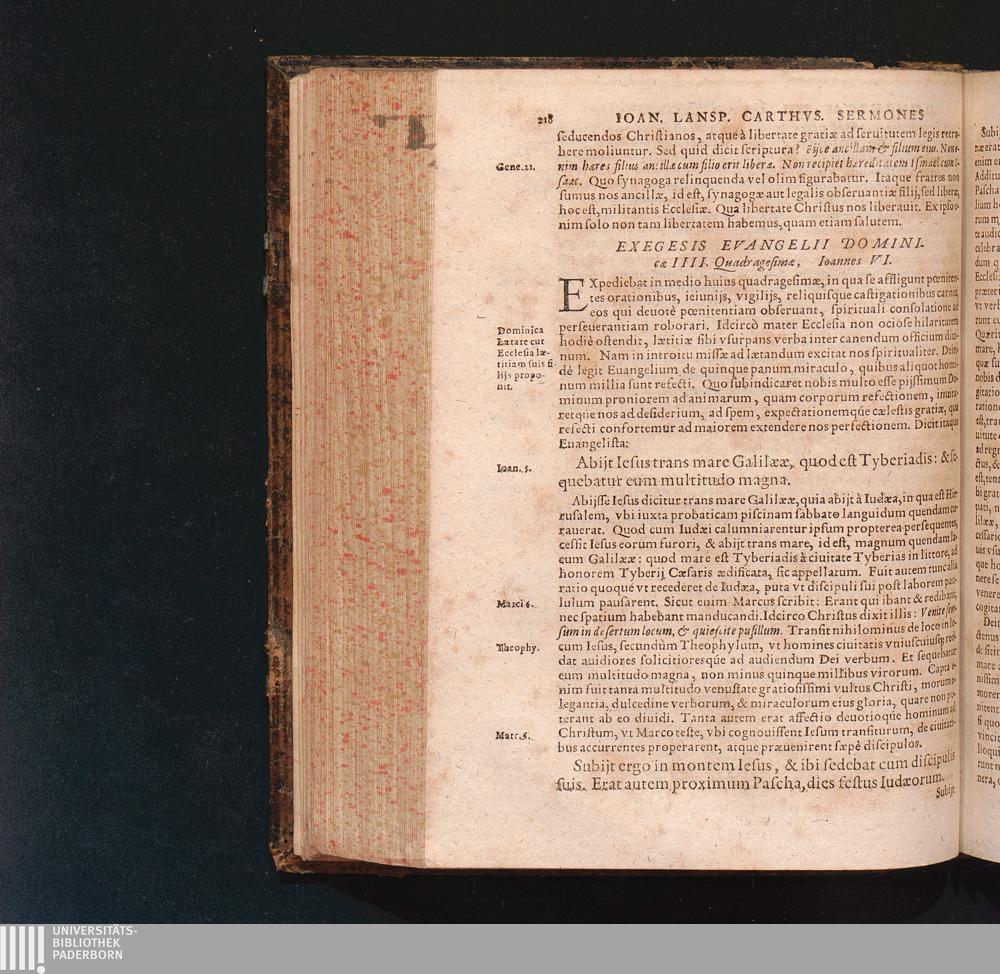 218 IOAN. LANSP. CARTHVS. SERMONES
ſeducendos Chriſtianos, atque à libertate gratiæ ad ſeruitutem legis retra-
here moliuntur. Sed quid dicit ſcriptura? Eijce ancillam & filium eius. Non e-
Gene. 21.
nim hæres filius ancillæ cum filio erit liberæ. Non recipiet hæreditatem Iſmael cum I-
ſaac. Quo ſynagoga relinquenda vel olim figurabatur. Itaque fratres non
ſumus nos ancillæ, id eſt, ſynagogæ aut legalis obſeruantiæ filij, ſed liberæ,
hoc eſt, militantis Eccleſiæ. Qua libertate Chriſtus nos liberauit. Ex ipſo e-
nim ſolo non tam libertatem habemus, quam etiam ſalutem.
EXEGESIS EVANGELII DOMINI-
cæ IIII. Quadrageſimæ, Ioannes VI.
EXpediebat in medio huius quadrageſimæ, in qua ſe affligunt pœniten-
tes orationibus, ieiunijs, vigilijs, reliquiſque caſtigationibus carnis,
eos qui deuotè pœnitentiam obſeruant, ſpirituali conſolatione ad
perſeuerantiam roborari. Idcircò mater Eccleſia non ociôſe hilaritatem
Dominica
Lætare cur
Eccleſia læ-
titiam ſuis fi-
lijs propo-
nit.
hodiè oſtendit, lætitiæ ſibi vſurpans verba inter canendum officium diui-
num. Nam in introitu miſſæ ad lætandum excitat nos ſpiritualiter. Dein-
dè legit Euangelium de quinque panum miraculo, quibus aliquot homi-
num millia ſunt refecti. Quo ſubindicaret nobis multo eſſe pijſſimum Do-
minum proniorem ad animarum, quam corporum refectionem, inuita-
retque nos ad deſiderium, ad ſpem, expectationemq́ue cæleſtis gratiæ, qua
refecti confortemur ad maiorem extendere nos perfectionem. Dicit itaque
Euangeliſta:
Ioan. 5.
Abijt Ieſus trans mare Galilææ, quod eſt Tyberiadis: & ſe-
quebatur eum multitudo magna.
Abijſſe Ieſus dicitur trans mare Galilææ, quia abijt à Iudæa, in qua eſt Hie-
ruſalem, vbi iuxta probaticam piſcinam ſabbato languidum quendam cu-
rauerat. Quod cum Iudæi calumniarentur ipſum propterea perſequentes,
ceſſit Ieſus eorum furori, & abijt trans mare, id eſt, magnum quendam la-
cum Galilææ: quod mare eſt Tyberiadis à ciuitate Tyberias in littore, ad
honorem Tyberij Cæſaris ædificata, ſic appellatum. Fuit autem tunc alia
ratio quoque vt recederet de Iudæa, puta vt diſcipuli ſui poſt laborem pau-
Marci 6.
lulum pauſarent. Sicut enim Marcus ſcribit: Erant qui ibant & redibant,
nec ſpatium habebant manducandi. Idcirco Chriſtus dixit illis: Venite ſeor-
ſum in deſertum locum, & quieſcite puſillum. Tranſit nihilominus de loco in lo-
Theophy.
cum Ieſus, ſecundùm Theophylum, vt homines ciuitatis vniuſcuiuſq; red-
dat auidiores ſolicitioresq́ue ad audiendum Dei verbum. Et ſequebatur
eum multitudo magna, non minus quinque millibus virorum. Capta e-
nim fuit tanta multitudo venuſtate gratioſiſſimi vultus Chriſti, morum e-
legantia, dulcedine verborum, & miraculorum eius gloria, quare non po-
terant ab eo diuidi. Tanta autem erat affectio deuotioq́ue hominum ad
Marc. 6.
Chriſtum, vt Marco teſte, vbi cognouiſſent Ieſum tranſiturum, de ciuitati-
bus accurrentes properarent, atque præuenirent ſæpè diſcipulos.
Subijt ergo in montem Ieſus, & ibi ſedebat cum diſcipulis
ſuis. Erat autem proximum Paſcha, dies feſtus Iudæorum.
Subijt
UNIVERSITÄTS-
BIBLIOTHEK
PADERBORN